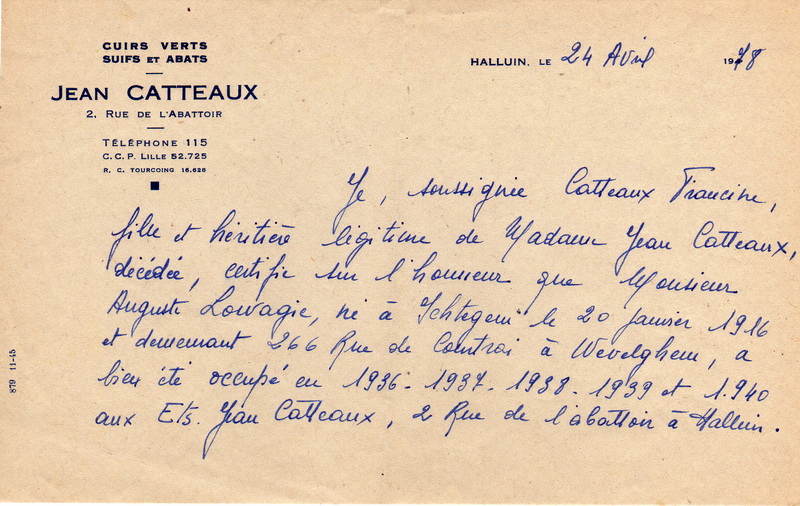 CUIRS VERTS
SUIFS ET ABATS
JEAN CATTEAUX
2, RUE DE L'ABATTOIR
TÉLÉPHONE 115
C. C. P. LILLE 52.725
R. C. TOURCOING 16.626
HALLUIN, LE 24 Avril 1978
Je, soussignée Catteaux Francine,
fille et héritière légitime de Madame Jean Catteaux,
décédée, certifie sur l'honneur que Monsieur
Auguste Lowagie, né à Ichtegem le 20 janvier 1916
et demeurant 266 Rue de Courtrai à Wevelghem, a
bien été occupé en 1936 - 1937 - 1938 - 1939 et 1.940
aux Ets. Jean Catteaux, 2 Rue de l'abattoir à Halluin.
879 11-45